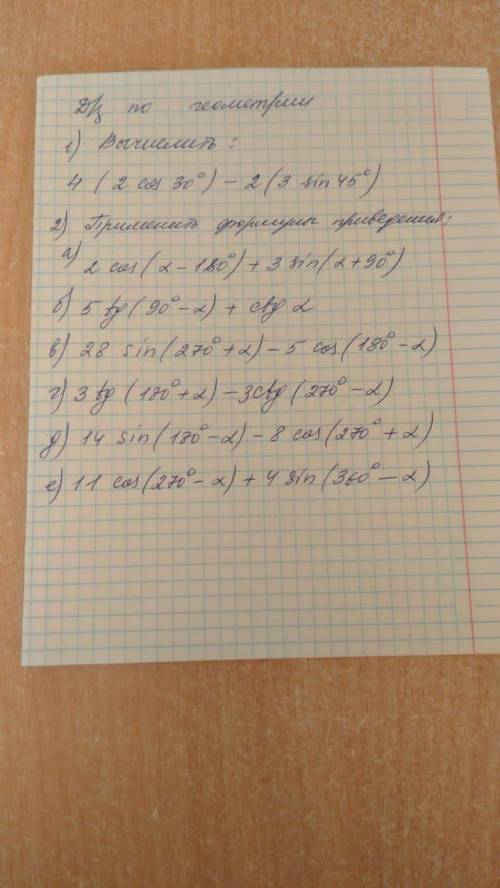 Д/з по геометрии
1) Вычислить:
4(2 cos 30°) - 2(3 sin 45°)
2) Применить формулы приведения:
а) 2 cos(α - 180°) + 3 sin(α + 90°)
б) 5 tg(90° - α) + ctg α
в) 28 sin(270° + α) - 5 cos(180° - α)
г) 3 tg(180° + α) - 3ctg(270° - α)
д) 14 sin(180° - α) - 8 cos(270° + α)
е) 11 cos(270° - α) + 4 sin(360° - α)